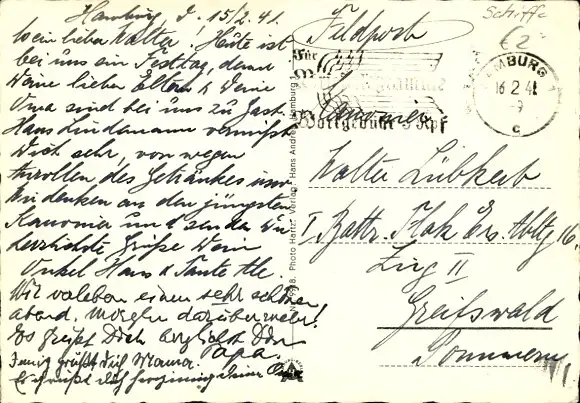 Hamburg d. 15/2. 41.
Mein lieber Walter! Heute ist
bei uns ein Festtag, denn
Deine lieben Eltern & Deine
Oma sind bei uns zu Gast
Hans Lindemann vermisst
Dich sehr, von wegen
des Getränkes
denken an den jüngsten
Kanonier und senden Dir
herzlichste Grüße Dein
Onkel Hans & Tante
Wir verleben einen sehr schönen
Abend. Morgen darüber mehr!
Es grüßt Dich Dein
Papa.
Innig grüßt dich Mama.
Schiffe
€ 2
Feldpost
HAMBURG 1
16. 2. 41
c
Für
Wortgebühr 5 Rpf
Kanonier
Walter Lübkert
I. Battr. Flak Ers. Abtlg 16.
Zug II
Greifswald
Pommern
Photo Hartz: Verlag: Hans Andres, Hamburg 1